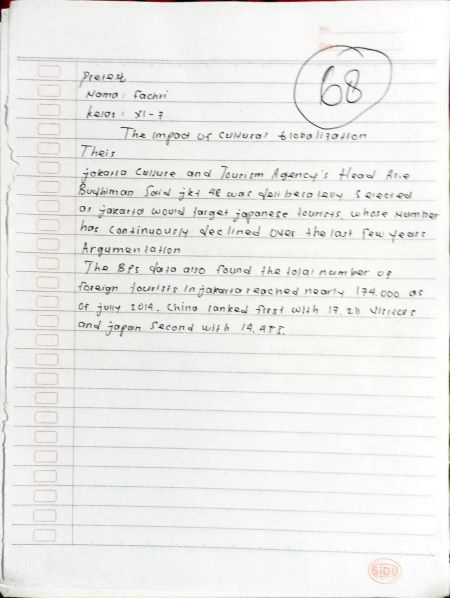 No
68
Pretest
Nama : Fachri
Kelas : XI-7
The Impact of Cultural Globalization
Theis
jakarta Culture and Tourism Agency's Head Arie
Budhiman Said jkt 48 was deliberately Selected
as jakarta would target japanese tourists whose number
has continuously declined over the last few years
Argumentation
The BPS data also found the total number of
foreign tourists in jakarta reached nearly 174.000 as
of july 2014. China ranked first with 17.211 visitors
and japan Second with 14.455.
SIDU